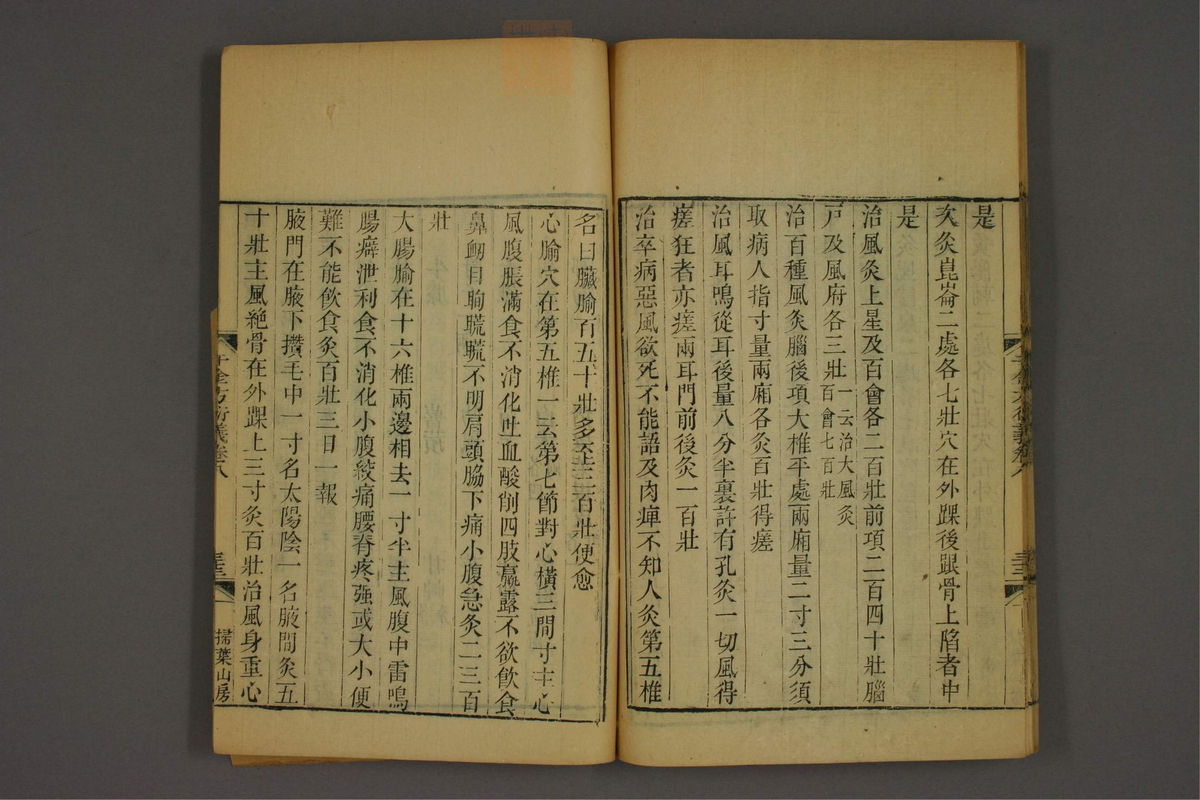 是
次灸崑崙二處各七壯穴在外踝後跟骨上陷者中
是
治風灸上星及百會各二百壯前項二百四十壯腦
戸及風府各三壯一云治大風灸
百會七百壯
治百種風灸腦後項大椎平處兩廂量二寸三分須
取病人指寸量兩廂各灸百壯得瘥
治風耳鳴從耳後量八分半裏許有孔灸一切風得
瘥狂者亦瘥兩耳門前後灸一百壯
治卒病惡風欲死不能語及肉痺不知人灸第五椎
名曰臟腧百五十壯多至三百壯便愈
心腧穴在第五椎一云第七節對心橫三間寸主心
風腹脹滿食不消化吐血酸削四肢羸露不欲飲食
鼻衂目眴䀮䀮不明肩頭脇下痛小腹急灸二三百
壯
大腸腧在十六椎兩邊相去一寸半主風腹中雷鳴
腸癖泄利食不消化小腹絞痛腰脊疼强或大小便
難不能飲食灸百壯三日一報
腋門在腋下攢毛中一寸名太陽陰一名腋間灸五
十壯主風絶骨在外踝上三寸灸百壯治風身重心
千金方衍義卷八
三十三
掃葉山房